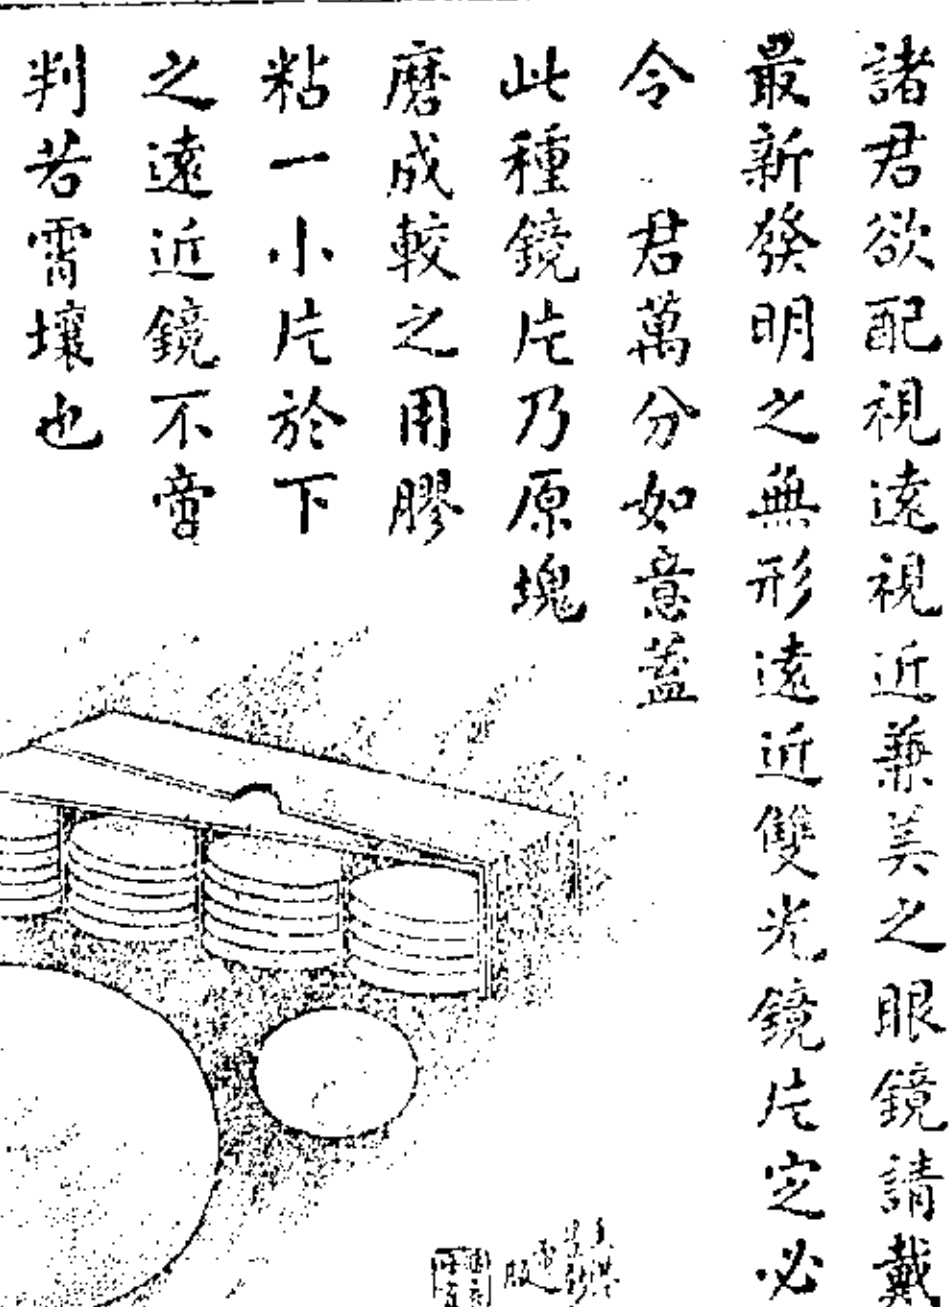 諸君欲配視遠視近兼美之眼鏡請戴
最新發明之無形遠近雙光鏡片定必
令 君萬分如意蓋
此種鏡片乃原塊
磨成較之用膠
粘一小片於下
之遠近鏡不啻
判若霄壤也